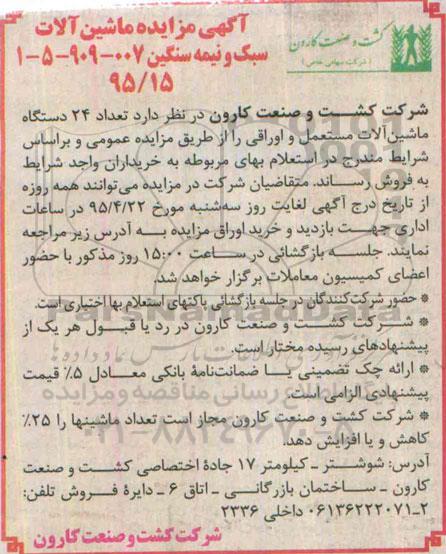 کشت و صنعت کارون
(شرکت سهامی خاص)
آگهی مزایده ماشین آلات
سبک و نیمه سنگین ۰۰۷-۹۰۹-۵-۱
۹۵/۱۵
شرکت کشت و صنعت کارون در نظر دارد تعداد ۲۴ دستگاه
ماشین‌آلات مستعمل و اوراقی را از طریق مزایده عمومی و براساس
شرایط مندرج در استعلام بهای مربوطه به خریداران واجد شرایط
به فروش رساند. متقاضیان شرکت در مزایده می‌توانند همه روزه
از تاریخ درج آگهی لغایت روز سه‌شنبه مورخ ۹۵/۴/۲۲ در ساعات
اداری جهت بازدید و خرید اوراق مزایده به آدرس زیر مراجعه
نمایند. جلسه بازگشائی در ساعت ۱۵:۰۰ روز مذکور با حضور
اعضای کمیسیون معاملات برگزار خواهد شد.
* حضور شرکت‌کنندگان در جلسه بازگشائی پاکتهای استعلام بها اختیاری است.
* شرکت کشت و صنعت کارون در رد یا قبول هر یک از
پیشنهادهای رسیده مختار است.
* ارائه چک تضمینی یا ضمانت‌نامهٔ بانکی معادل ۵٪ قیمت
پیشنهادی الزامی است.
* شرکت کشت و صنعت کارون مجاز است تعداد ماشینها را ۲۵٪
کاهش و یا افزایش دهد.
آدرس: شوشتر ـ کیلومتر ۱۷ جادهٔ اختصاصی کشت و صنعت
کارون ـ ساختمان بازرگانی ـ اتاق ۶ ـ دایرهٔ فروش تلفن:
۲ـ۰۶۱۳۶۲۲۲۰۷۱ داخلی ۲۳۳۶
شرکت کشت و صنعت کارون
ParsNamadData
۰۲۱-۸۸۳۴۹۶۷۰-۵